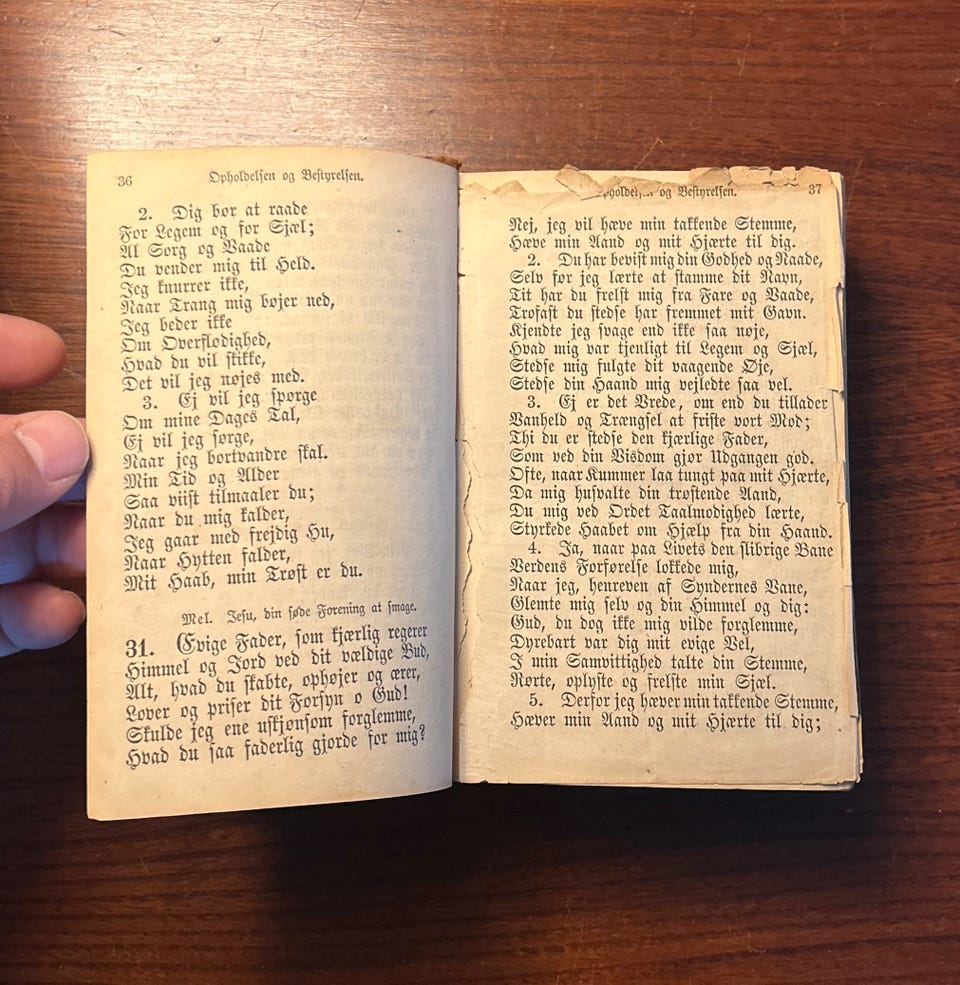 36 Opholdelsen og Bestyrelsen.
2. Dig bør at raade
For Legem og for Sjæl;
Al Sorg og Vaade
Du vender mig til Held.
Jeg knurrer ikke,
Naar Trang mig bøjer ned,
Jeg beder ikke
Om Overflødighed,
Hvad du vil skikke,
Det vil jeg nøjes med.
3. Ej vil jeg spørge
Om mine Dages Tal,
Ej vil jeg sørge,
Naar jeg bortvandre skal.
Min Tid og Alder
Saa viist tilmaaler du;
Naar du mig kalder,
Jeg gaar med frejdig Hu,
Naar Hytten falder,
Mit Haab, min Trøst er du.
Mel. Jesu, din søde Forening at smage.
31. Evige Fader, som kjærlig regerer
Himmel og Jord ved dit vældige Bud,
Alt, hvad du skabte, ophøjer og ærer,
Lover og priser dit Forsyn o Gud!
Skulde jeg ene uskjønsom forglemme,
Hvad du saa faderlig gjorde for mig?
Opholdelsen og Bestyrelsen. 37
Nej, jeg vil hæve min takkende Stemme,
Hæve min Aand og mit Hjærte til dig.
2. Du har bevist mig din Godhed og Naade,
Selv før jeg lærte at stamme dit Navn,
Tit har du frelst mig fra Fare og Vaade,
Trofast du stedse har fremmet mit Gavn.
Kjendte jeg svage end ikke saa nøje,
Hvad mig var tjenligt til Legem og Sjæl,
Stedse mig fulgte dit vaagende Øje,
Stedse din Haand mig vejledte saa vel.
3. Ej er det Vrede, om end du tillader
Vanheld og Trængsel at friste vort Mod;
Thi du er stedse den kjærlige Fader,
Som ved din Visdom gjør Udgangen god.
Ofte, naar Kummer laa tungt paa mit Hjærte,
Da mig husvalte din trøstende Aand,
Du mig ved Ordet Taalmodighed lærte,
Styrkede Haabet om Hjælp fra din Haand.
4. Ja, naar paa Livets den slibrige Bane
Verdens Forførelse lokkede mig,
Naar jeg, henreven af Syndernes Vane,
Glemte mig selv og din Himmel og dig:
Gud, du dog ikke mig vilde forglemme,
Dyrebart var dig mit evige Vel,
I min Samvittighed talte din Stemme,
Rørte, oplyste og frelste min Sjæl.
5. Derfor jeg hæver min takkende Stemme,
Hæver min Aand og mit Hjærte til dig;